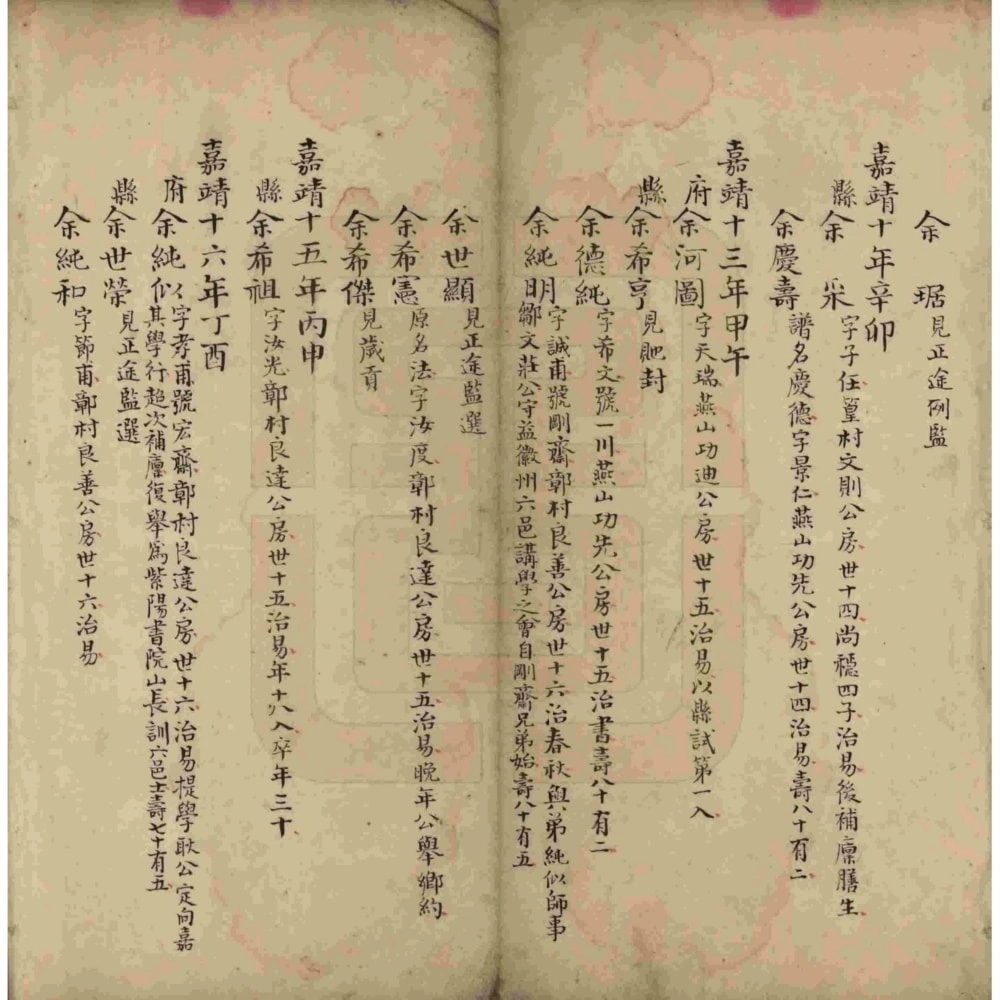 余 琚見正途例監
嘉靖十年辛卯
縣余 采字子任篁村文則公房世十四尚穩四子治易後補廪膳生
余慶壽譜名慶德字景仁燕山功先公房世十四治易壽八十有二
嘉靖十三年甲午
府余河圖字天瑞燕山功迪公房世十五治易以縣試第一入
縣余希亨見貤封
余德純字希文號一川燕山功先公房世十五治書壽八十有二
余純明字誠甫號剛齋鄣村良善公房世十六治春秋與弟純似師事
鄒文莊公守益徽州六邑講學之會自剛齋兄弟始壽八十有五
余世顯見正途監選
余希憲原名法字汝度鄣村良達公房世十五治易晚年公舉鄉約
余希傑見歲貢
嘉靖十五年丙申
縣余希祖字汝光鄣村良達公房世十五治易年十八入卒年三十
嘉靖十六年丁酉
府余純似字孝甫號宏齋鄣村良達公房世十六治易提學耿公定向嘉
其學行超次補廪復舉爲紫陽書院山長訓六邑士壽七十有五
縣余世榮見正途監選
余純和字節甫鄣村良善公房世十六治易